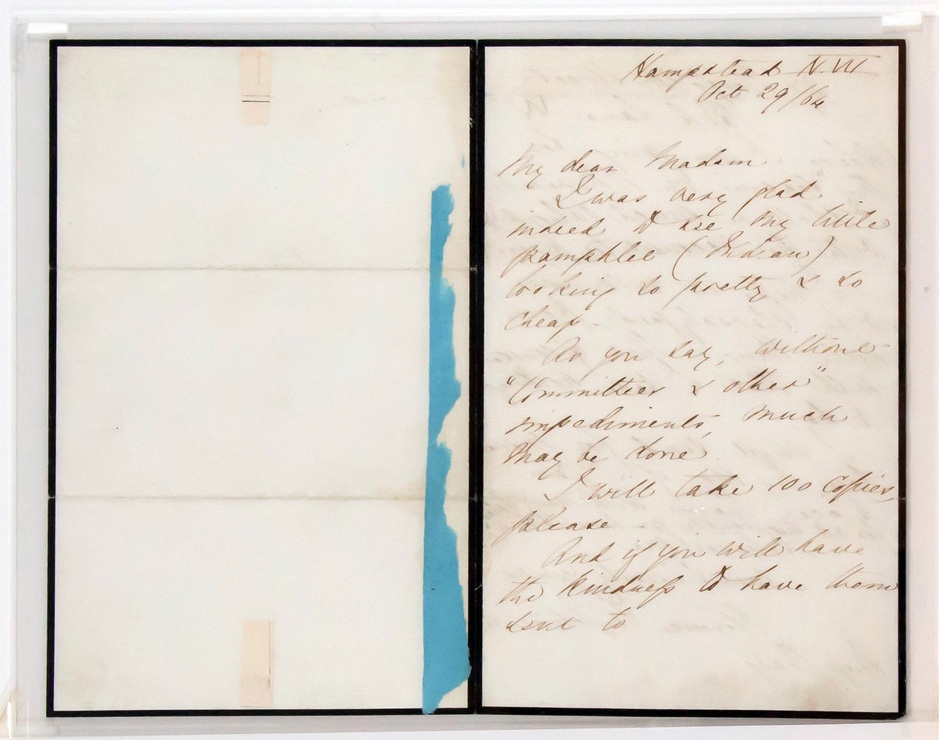 Hampstead N.W.
Oct 29/64
My dear Madam
I was very glad
indeed to see my little
pamphlet (Indian)
looking so pretty & so
cheap.
As you say, without
"Committees & other"
impediments, much
may be done.
I will take 100 copies,
please.
And if you will have
the kindness to have them
sent to